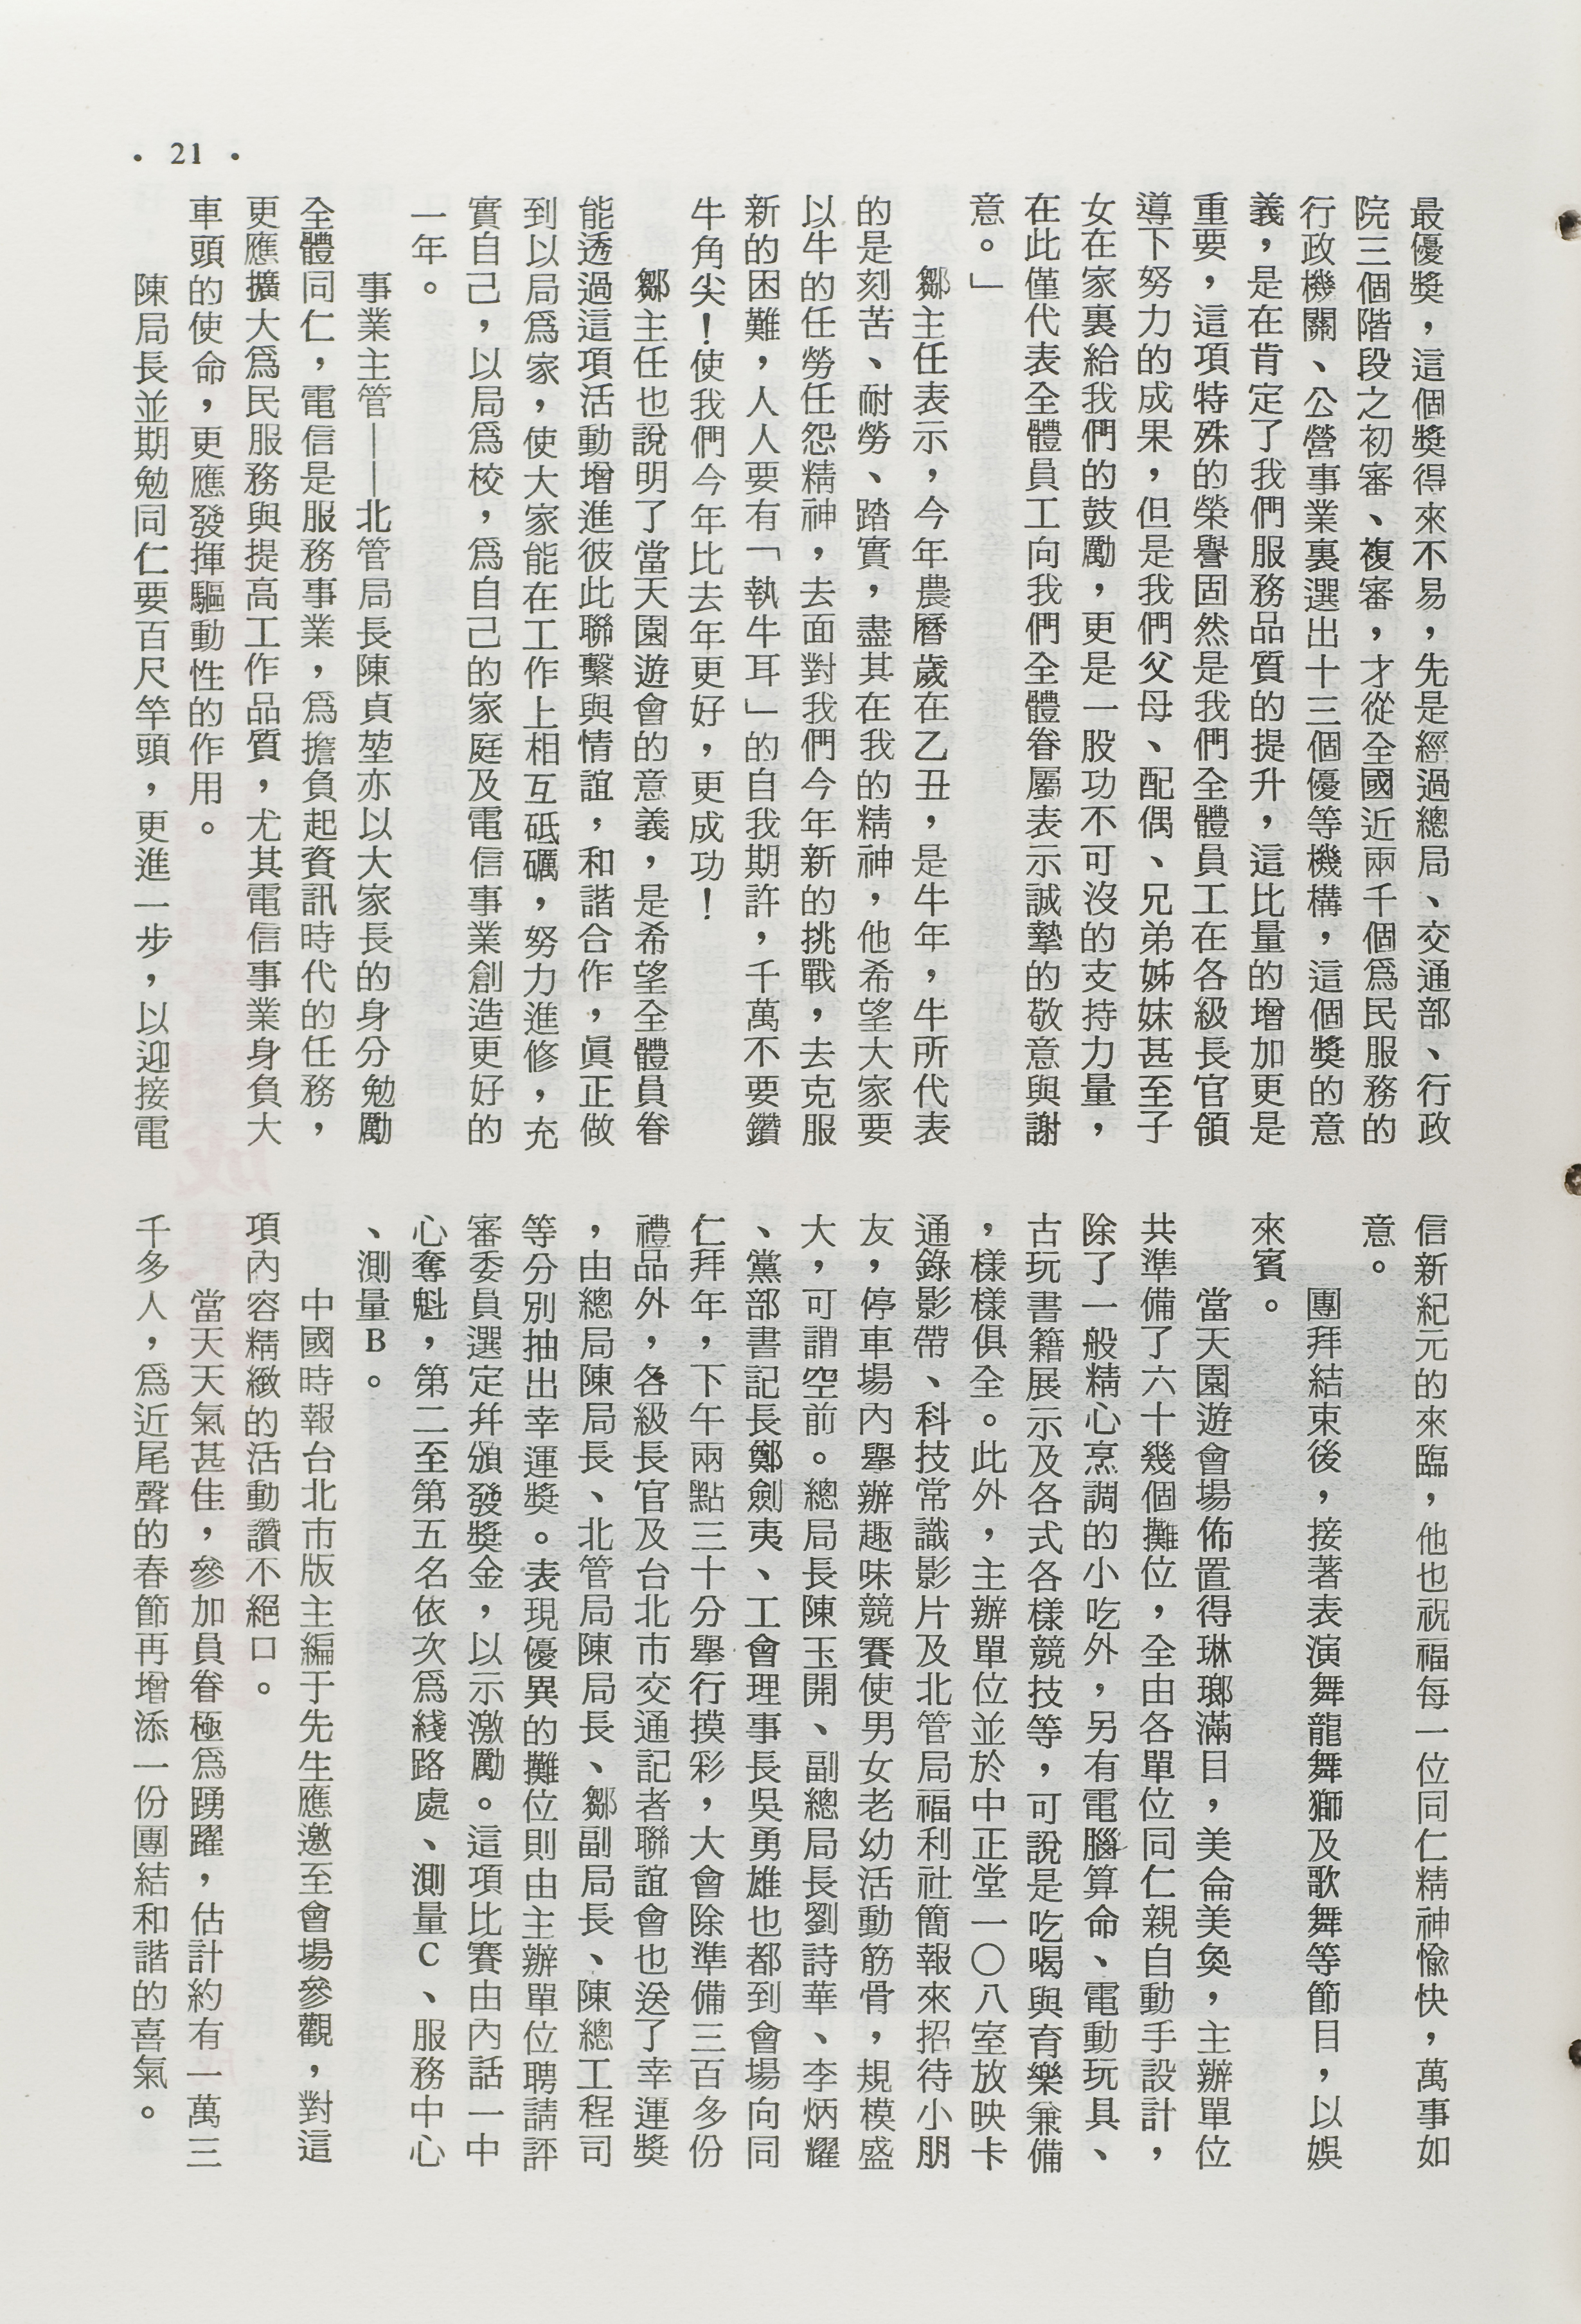 • 21 •
最優獎，這個獎得來不易，先是經過總局、交通部、行政
院三個階段之初審、複審，才從全國近兩千個爲民服務的
行政機關、公營事業裏選出十三個優等機構，這個獎的意
義，是在肯定了我們服務品質的提升，這比量的增加更是
重要，這項特殊的榮譽固然是我們全體員工在各級長官領
導下努力的成果，但是我們父母、配偶、兄弟姊妹甚至子
女在家裏給我們的鼓勵，更是一股功不可沒的支持力量，
在此僅代表全體員工向我們全體眷屬表示誠摯的敬意與謝
意。」
鄒主任表示，今年農曆歲在乙丑，是牛年，牛所代表
的是刻苦、耐勞、踏實，盡其在我的精神，他希望大家要
以牛的任勞任怨精神，去面對我們今年新的挑戰，去克服
新的困難，人人要有「執牛耳」的自我期許，千萬不要鑽
牛角尖！使我們今年比去年更好，更成功！
鄒主任也說明了當天園遊會的意義，是希望全體員眷
能透過這項活動增進彼此聯繫與情誼，和諧合作，眞正做
到以局爲家，使大家能在工作上相互砥礪，努力進修，充
實自己，以局爲校，爲自己的家庭及電信事業創造更好的
一年。
事業主管——北管局長陳貞堃亦以大家長的身分勉勵
全體同仁，電信是服務事業，爲擔負起資訊時代的任務，
更應擴大爲民服務與提高工作品質，尤其電信事業身負大
車頭的使命，更應發揮驅動性的作用。
陳局長並期勉同仁要百尺竿頭，更進一步，以迎接電
信新紀元的來臨，他也祝福每一位同仁精神愉快，萬事如
意。
團拜結束後，接著表演舞龍舞獅及歌舞等節目，以娛
來賓。
當天園遊會場佈置得琳瑯滿目，美侖美奐，主辦單位
共準備了六十幾個攤位，全由各單位同仁親自動手設計，
除了一般精心烹調的小吃外，另有電腦算命、電動玩具、
古玩書籍展示及各式各樣競技等，可說是吃喝與育樂兼備
，樣樣俱全。此外，主辦單位並於中正堂一〇八室放映卡
通錄影帶、科技常識影片及北管局福利社簡報來招待小朋
友，停車場內舉辦趣味競賽使男女老幼活動筋骨，規模盛
大，可謂空前。總局長陳玉開、副總局長劉詩華、李炳耀
、黨部書記長鄭劍夷、工會理事長吳勇雄也都到會場向同
仁拜年，下午兩點三十分舉行摸彩，大會除準備三百多份
禮品外，各級長官及台北市交通記者聯誼會也送了幸運獎
，由總局陳局長、北管局陳局長、鄒副局長、陳總工程司
等分別抽出幸運獎。表現優異的攤位則由主辦單位聘請評
審委員選定幷頒發獎金，以示激勵。這項比賽由內話一中
心奪魁，第二至第五名依次爲綫路處、測量C、服務中心
、測量B。
中國時報台北市版主編于先生應邀至會場參觀，對這
項內容精緻的活動讚不絕口。
當天天氣甚佳，參加員眷極爲踴躍，估計約有一萬三
千多人，爲近尾聲的春節再增添一份團結和諧的喜氣。